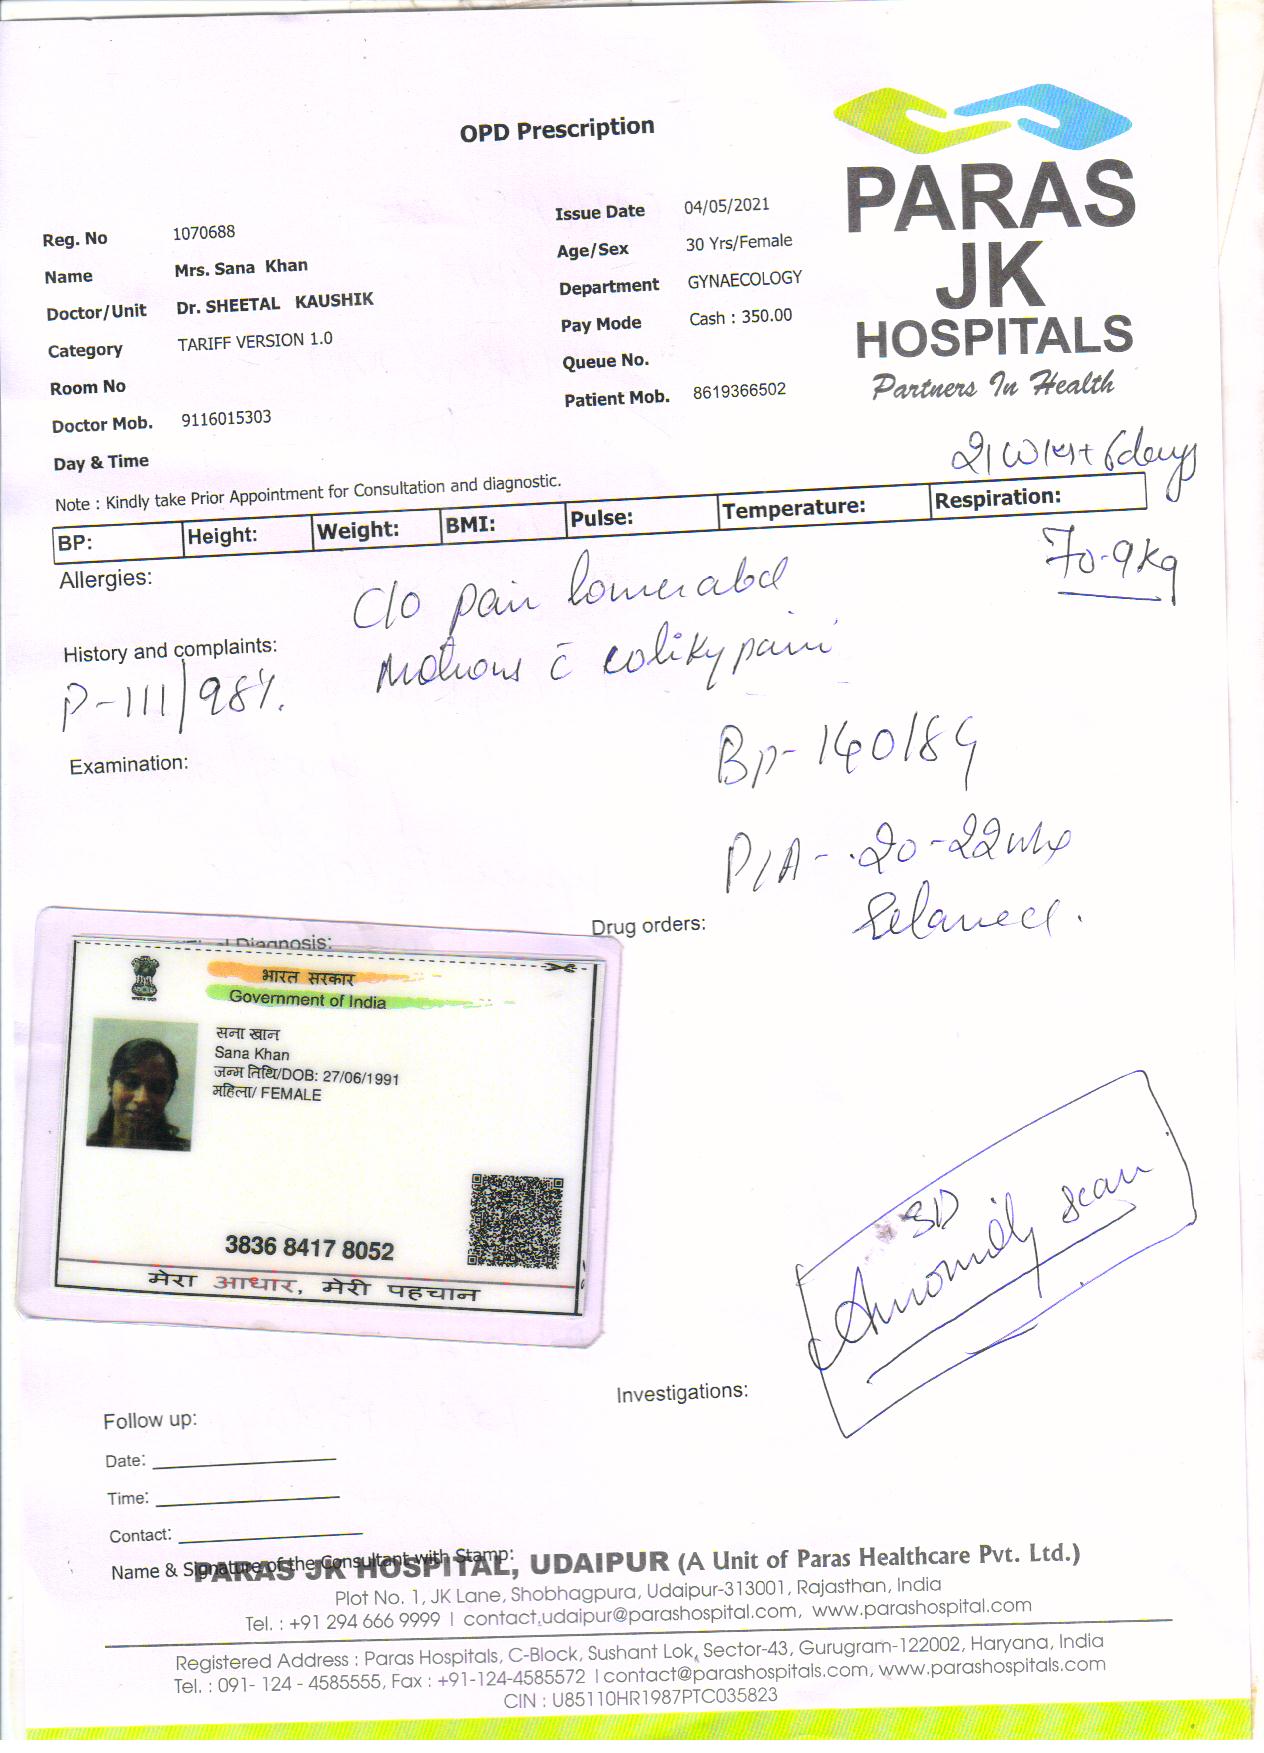 OPD Prescription
PARAS
JK
HOSPITALS
Partners In Health
Reg. No 1070688
Name Mrs. Sana Khan
Doctor/Unit Dr. SHEETAL KAUSHIK
Category TARIFF VERSION 1.0
Room No
Doctor Mob. 9116015303
Day & Time
Issue Date 04/05/2021
Age/Sex 30 Yrs/Female
Department GYNAECOLOGY
Pay Mode Cash : 350.00
Queue No.
Patient Mob. 8619366502
21 wk+ 6days
Note : Kindly take Prior Appointment for Consultation and diagnostic.
BP: Height: Weight: BMI: Pulse: Temperature: Respiration:
70.9kg
Allergies:
C/o pain lower abd
History and complaints:
Motions c̄ coliky pain
P-111/98%.
Examination:
Bp- 140/89
P/A- 20-22wks
Relaxed.
Drug orders:
Diagnosis:
भारत सरकार
Government of India
सना खान
Sana Khan
जन्म तिथि/DOB: 27/06/1991
महिला/ FEMALE
3836 8417 8052
मेरा आधार, मेरी पहचान
Anomily scan
Investigations:
Follow up:
Date:
Time:
Contact:
Name & Signature of the Consultant with Stamp:
PARAS JK HOSPITAL, UDAIPUR (A Unit of Paras Healthcare Pvt. Ltd.)
Plot No. 1, JK Lane, Shobhagpura, Udaipur-313001, Rajasthan, India
Tel. : +91 294 666 9999 I contact.udaipur@parashospital.com, www.parashospital.com
Registered Address : Paras Hospitals, C-Block, Sushant Lok, Sector-43, Gurugram-122002, Haryana, India
Tel. : 091- 124 - 4585555, Fax : +91-124-4585572 I contact@parashospitals.com, www.parashospitals.com
CIN : U85110HR1987PTC035823